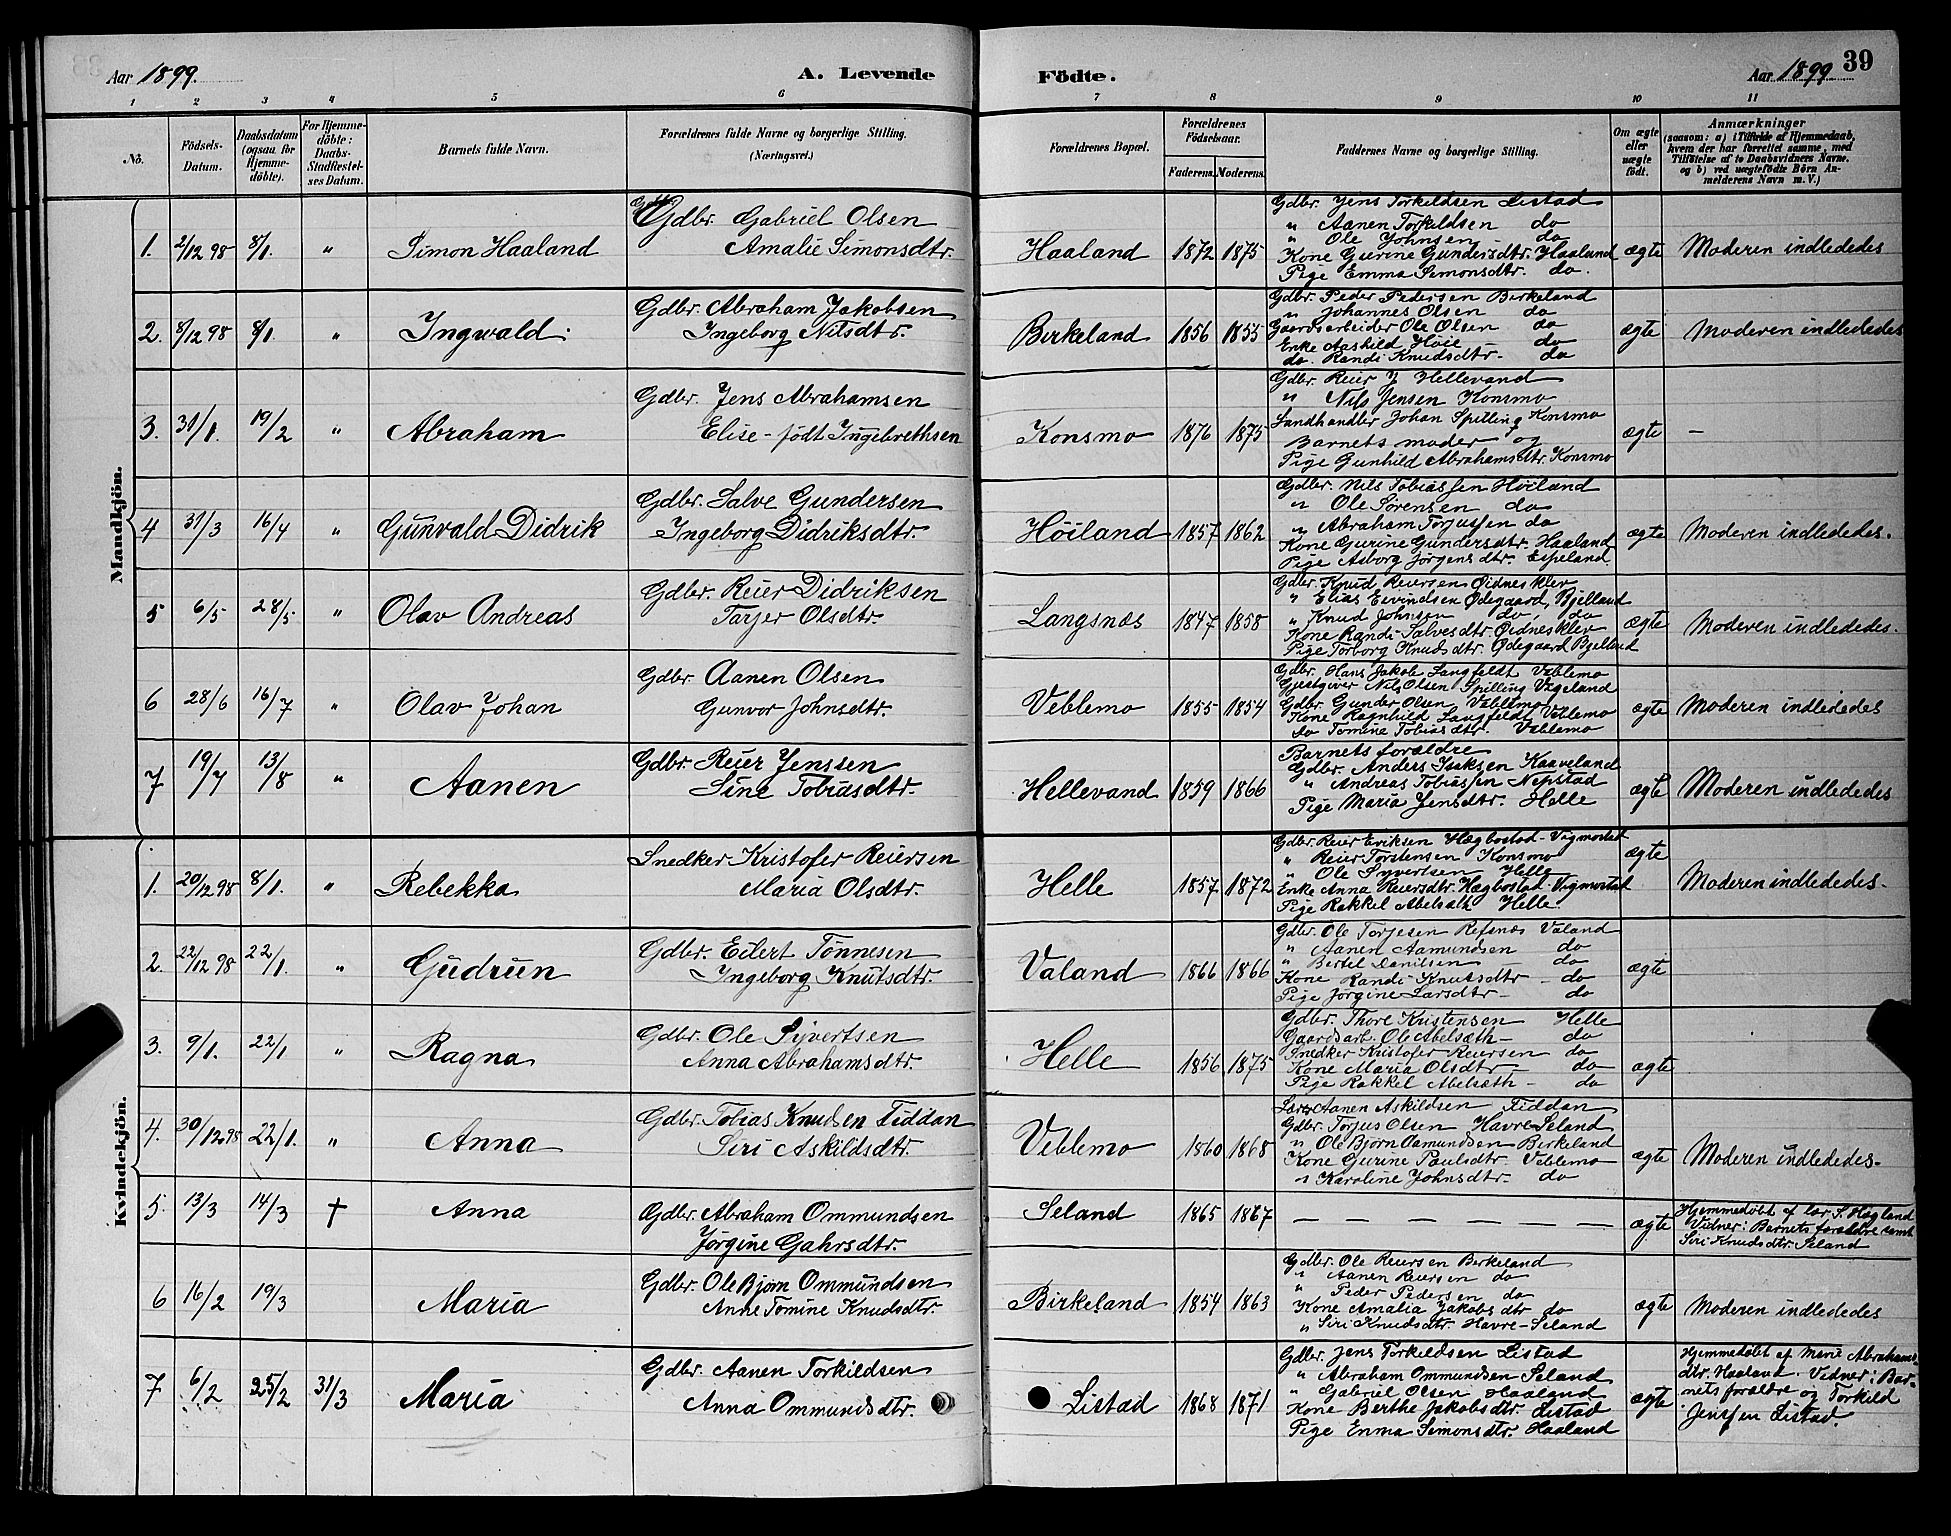 Aar 1899.
A. Levende Födte.
Aar 1899 39
1 2 3 4 5 6 7 8 9 10 11
No.
Födsels-Datum.
Daabsdatum (ogsaa for Hjemme-döbte).
For Hjemme-döbte: Daabs-Stadfæstel-ses Datum.
Barnets fulde Navn.
Forældrenes fulde Navne og borgerlige Stilling.
(Næringsvei.)
Forældrenes Bopæl.
Forældrenes Födselsaar.
Faderens. Moderens.
Faddernes Navne og borgerlige Stilling.
Om ægte eller uægte födt.
Anmærkninger
(saasom: a) i Tilfælde af Hjemmedaab, hvem der har forrettet samme, med Tilföielse af to Daabsvidners Navne. og b) ved uægtefödte Börn An-melderens Navn m. V.)
Mandkjön.
1. 2/12 98 8/1. " Simon Haaland
Gdbr. Gabriel Olsen
Amalie Simonsdtr.
Haaland 1872 1875
Gdbr. Jens Torkildsen Listad
" Aanen Torkildsen do
" Ole Johnsen do
Kone Gurine Gundersdtr. Haaland
Pige Emma Simonsdtr. do.
ægte Moderen indlededes
2. 8/12 98 8/1. " Ingwald.
Gdbr. Abraham Jakobsen
Ingeborg Nilsdtr.
Birkeland 1856 1855
Gdbr. Peder Pedersen Birkeland
" Johannes Olsen do
Gaardsarbeider Ole Olsen do
Enke Aashild Höie - do
do. Randi Knudsdtr- do
ægte Moderen indlededes
3. 31/1. 19/2 " Abraham
Gdbr. Jens Abrahamsen
Elise - födt Ingebrethsen
Konsmo 1876 1875
Gdbr. Reier J Hellevand
" Nils Jensen Konsmo
Landhandler Johan Spilling Konsmo
Barnets moder og
Pige Gunhild Abrahamsdtr. Konsmo
ægte -
4 31/3 16/4 " Gunvald Didrik
Gdbr. Salve Gundersen
Ingeborg Didriksdtr.
Höiland 1857 1862
Gdbr. Nils Tobiassen Höiland
" Ole Sörensen do
" Abraham Torjussen do
Kone Gurine Gundersdtr. Haaland
Pige Asborg Jörgensdtr. Espeland
ægte Moderen indlededes.
5 6/5 28/5. " Olav Andreas
Gdbr. Reier Didriksen
Tarjer Olsdtr.
Langsnæs 1847 1858
Gdbr. Knud Reiersen Öidnesklev
" Elias Eivindsen Ödegaard, Bjelland
" Knud Johnsen do, do
Kone Randi Salvesdtr. Öidnesklev
Pige Torborg Knudsdtr. Ödegaard Bjelland
ægte Moderen indlededes.
6 28/6 16/7 " Olav Johan
Gdbr. Aanen Olsen
Gunvor Johnsdtr.
Veblemo 1855 1854
Gdbr. Hans Jakob Langfeldt Veblemo
Gjestgiver Nils Olsen Spilling Vegeland
Gdbr. Gunder Olsen Veblemo
Kone Ragnhild Langfeldt Veblemo
do Tomine Tobiasdtr. Veblemo
ægte Moderen indlededes
7 19/7 13/8 " Aanen
Gdbr. Reier Jenssen
Sine Tobiasdtr.
Hellevand 1859 1866
Barnets forældre
Gdbr. Anders Isaksen Kaaveland
" Andreas Tobiassen Nepstad
Pige Maria Jensdtr. Helle
ægte Moderen indlededes
Kvindekjön.
1. 20/12 98 8/1. " Rebekka
Snedker Kristofer Reiersen
Maria Olsdtr.
Helle 1857 1872
Gdbr. Reier Eriksen Hægbostad - Vigmostad
" Reier Torstensen Konsmo
" Ole Syvertsen Helle
Enke Anna Reiersdtr. Hægbostad. Vigmostad
Pige Rakkel Abelsæth Helle.
ægte Moderen indlededes.
2. 22/12 98 22/1. " Gudrun
Gdbr. Eilert Tönnesen
Ingeborg Knutsdtr.
Valand 1866 1866
Gdbr. Ole Torjesen Refsnes Valand
" Aanen Aamundsen do
" Bertel Danilsen do
Kone Randi Knutsdtr - do
Pige Jörgine Larsdtr- do
ægte
3. 9/1. 22/1 " Ragna
Gdbr. Ole Syvertsen
Anna Abrahamsdtr.
Helle 1856 1875
Gdbr. Thore Kristensen Helle
Gaardsarb. Ole Abelsæth- do
Snedker Kristofer Reiersen do
Kone Maria Olsdtr do
Pige Rakkel Abelsæth- do
ægte
4. 30/12 98 22/1. " Anna
Gdbr. Tobias Knudsen Fiddan
Siri Askildsdtr.
Veblemo 1860 1868
Lærer Aanen Askildsen Fiddan
Gdbr. Torjus Olsen Havre Seland
" Ole Björn Aamundsen Birkeland
Kone Gurine Paulsdtr. Veblemo
" Karoline Johnsdtr- do
ægte Moderen indlededes.
5. 13/3 14/3 † Anna
Gdbr. Abraham Ommundsen
Jörgine Gahrsdtr.
Seland 1865 1867
— — — — — — — —
ægte Hjemmedöbt af lær S. Haaland
Vidner: Barnets forældre samt
Siri Knudsdtr. Seland
6 16/2 19/3 Maria
Gdbr. Ole Björn Ommundsen
Anne Tomine Knudsdtr.
Birkeland 1854 1863
Gdbr. Ole Reiersen Birkeland
" Aanen Reiersen do
" Peder Pedersen do
Kone Amalia Jakobsdtr do
" Siri Knudsdtr. Havre-Seland
ægte Moderen indlededes
7 6/2 25/2 31/3 Maria
Gdbr. Aanen Torkildsen
Anna Ommundsdtr.
Listad 1868 1871
Gdbr. Jens Torkildsen Listad
" Abraham Ommundsen Seland
" Gabriel Olsen Haaland
Kone Berthe Jakobsdtr Listad
Pige Emma Simonsdtr. Haaland
ægte Hjemmedöbt af Marie Abrahams-
dtr. Haaland. Vidner: Bar-
nets forældre og Torkild
Jenssen Listad.